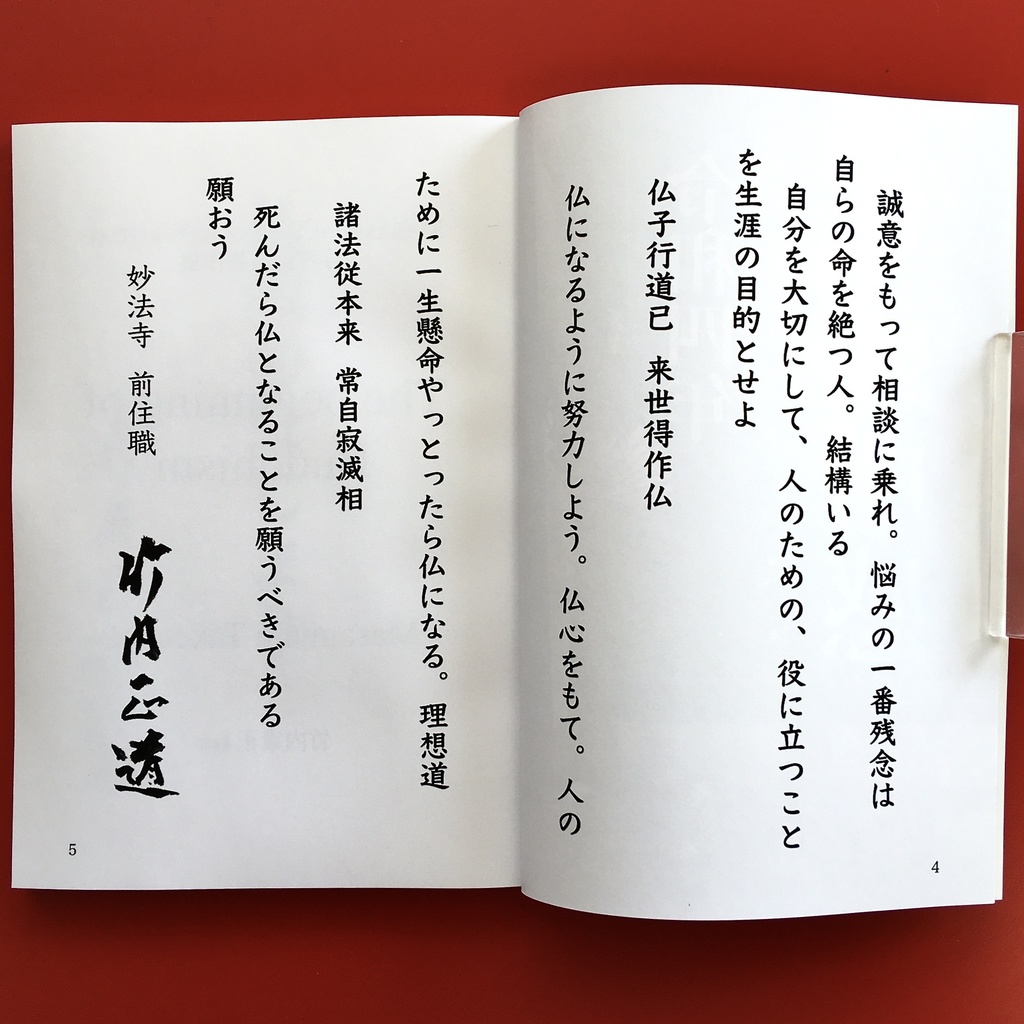 誠意をもって相談に乗れ。悩みの一番残念は
自らの命を絶つ人。結構いる
自分を大切にして、人のための、役に立つこと
を生涯の目的とせよ
仏子行道已　来世得作仏
仏になるように努力しよう。仏心をもて。人の
4
ために一生懸命やっとったら仏になる。理想道
諸法従本来　常自寂滅相
死んだら仏となることを願うべきである
願おう
妙法寺　前住職
竹内正道
5